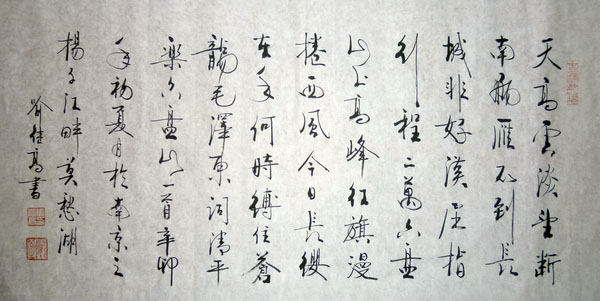 天高雲淡望断
南飛雁不到長
城非好漢屈指
行程二萬六盤
山上高峰红旗漫
捲西風今日長纓
在手何時縛住蒼
龍毛澤東詞清平
樂六盤山一首辛卯
年初夏月於南京之
楊子江畔莫愁湖
高書